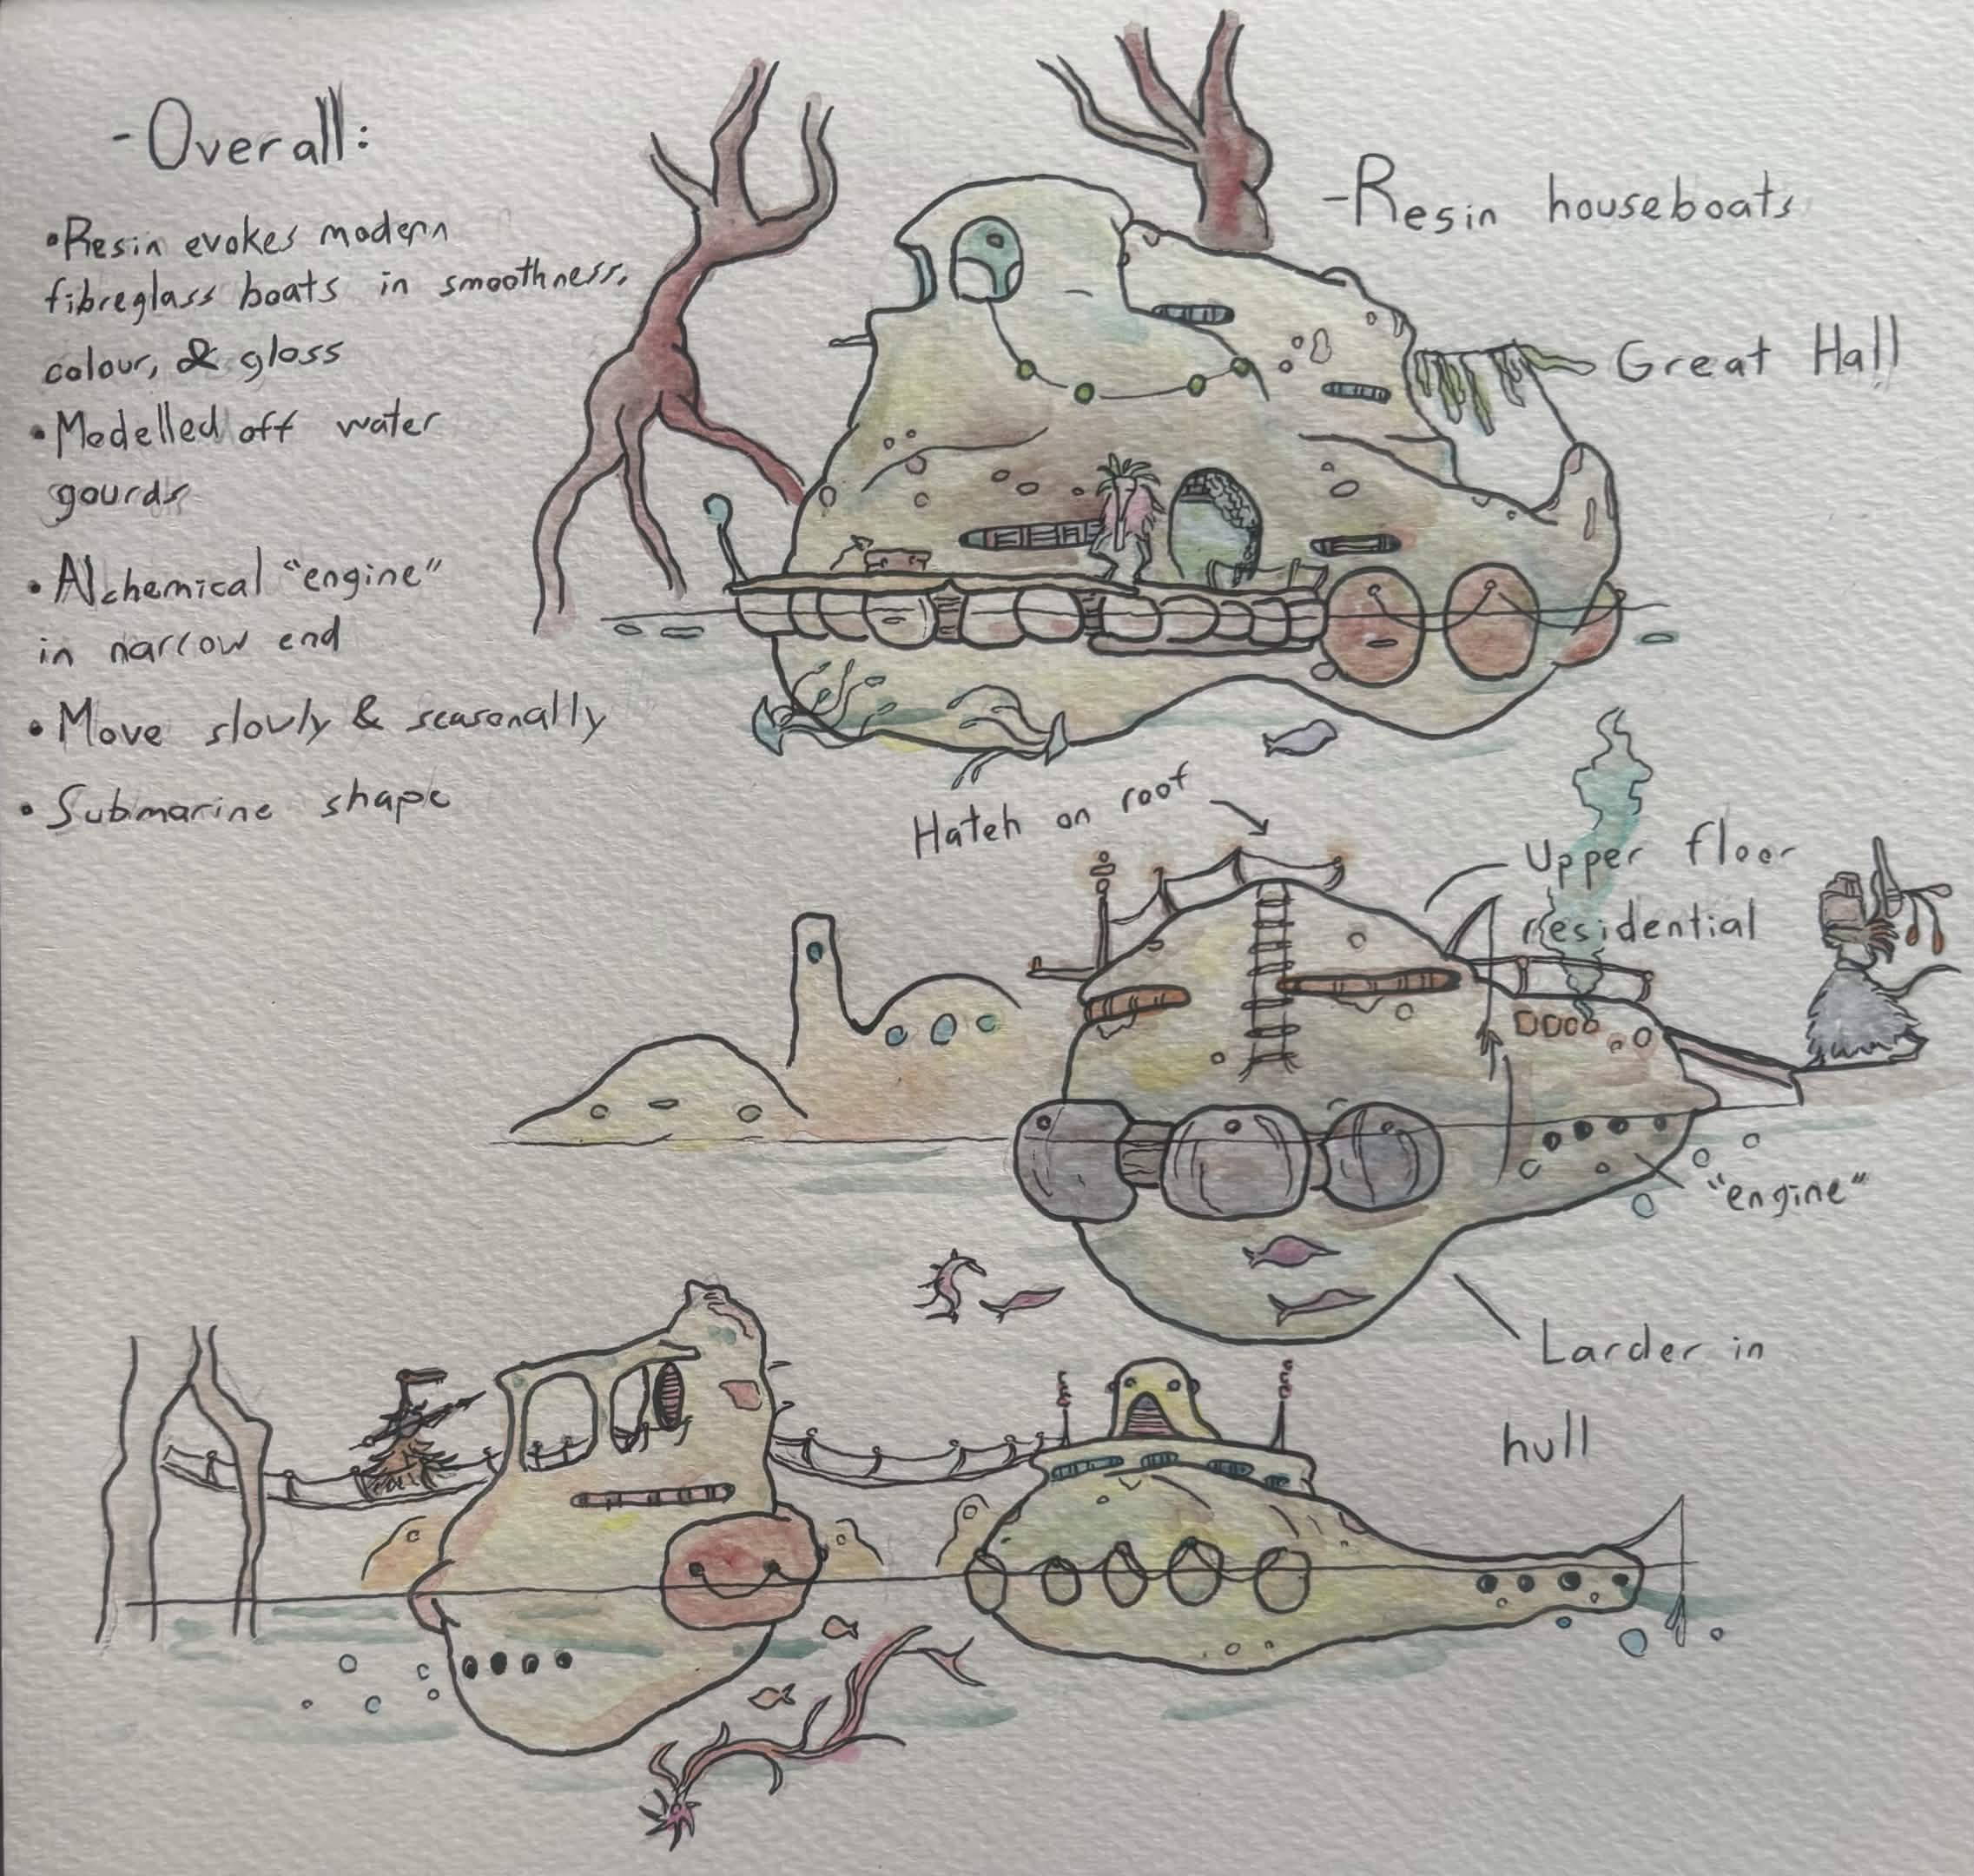 - Overall:
• Resin evokes modern
fibreglass boats in smoothness,
colour, & gloss
• Modelled off water
gourds
• Alchemical "engine"
in narrow end
• Move slowly & seasonally
• Submarine shape
- Resin houseboats
Great Hall
Hatch on roof
Upper floor
residential
"engine"
Larder in
hull